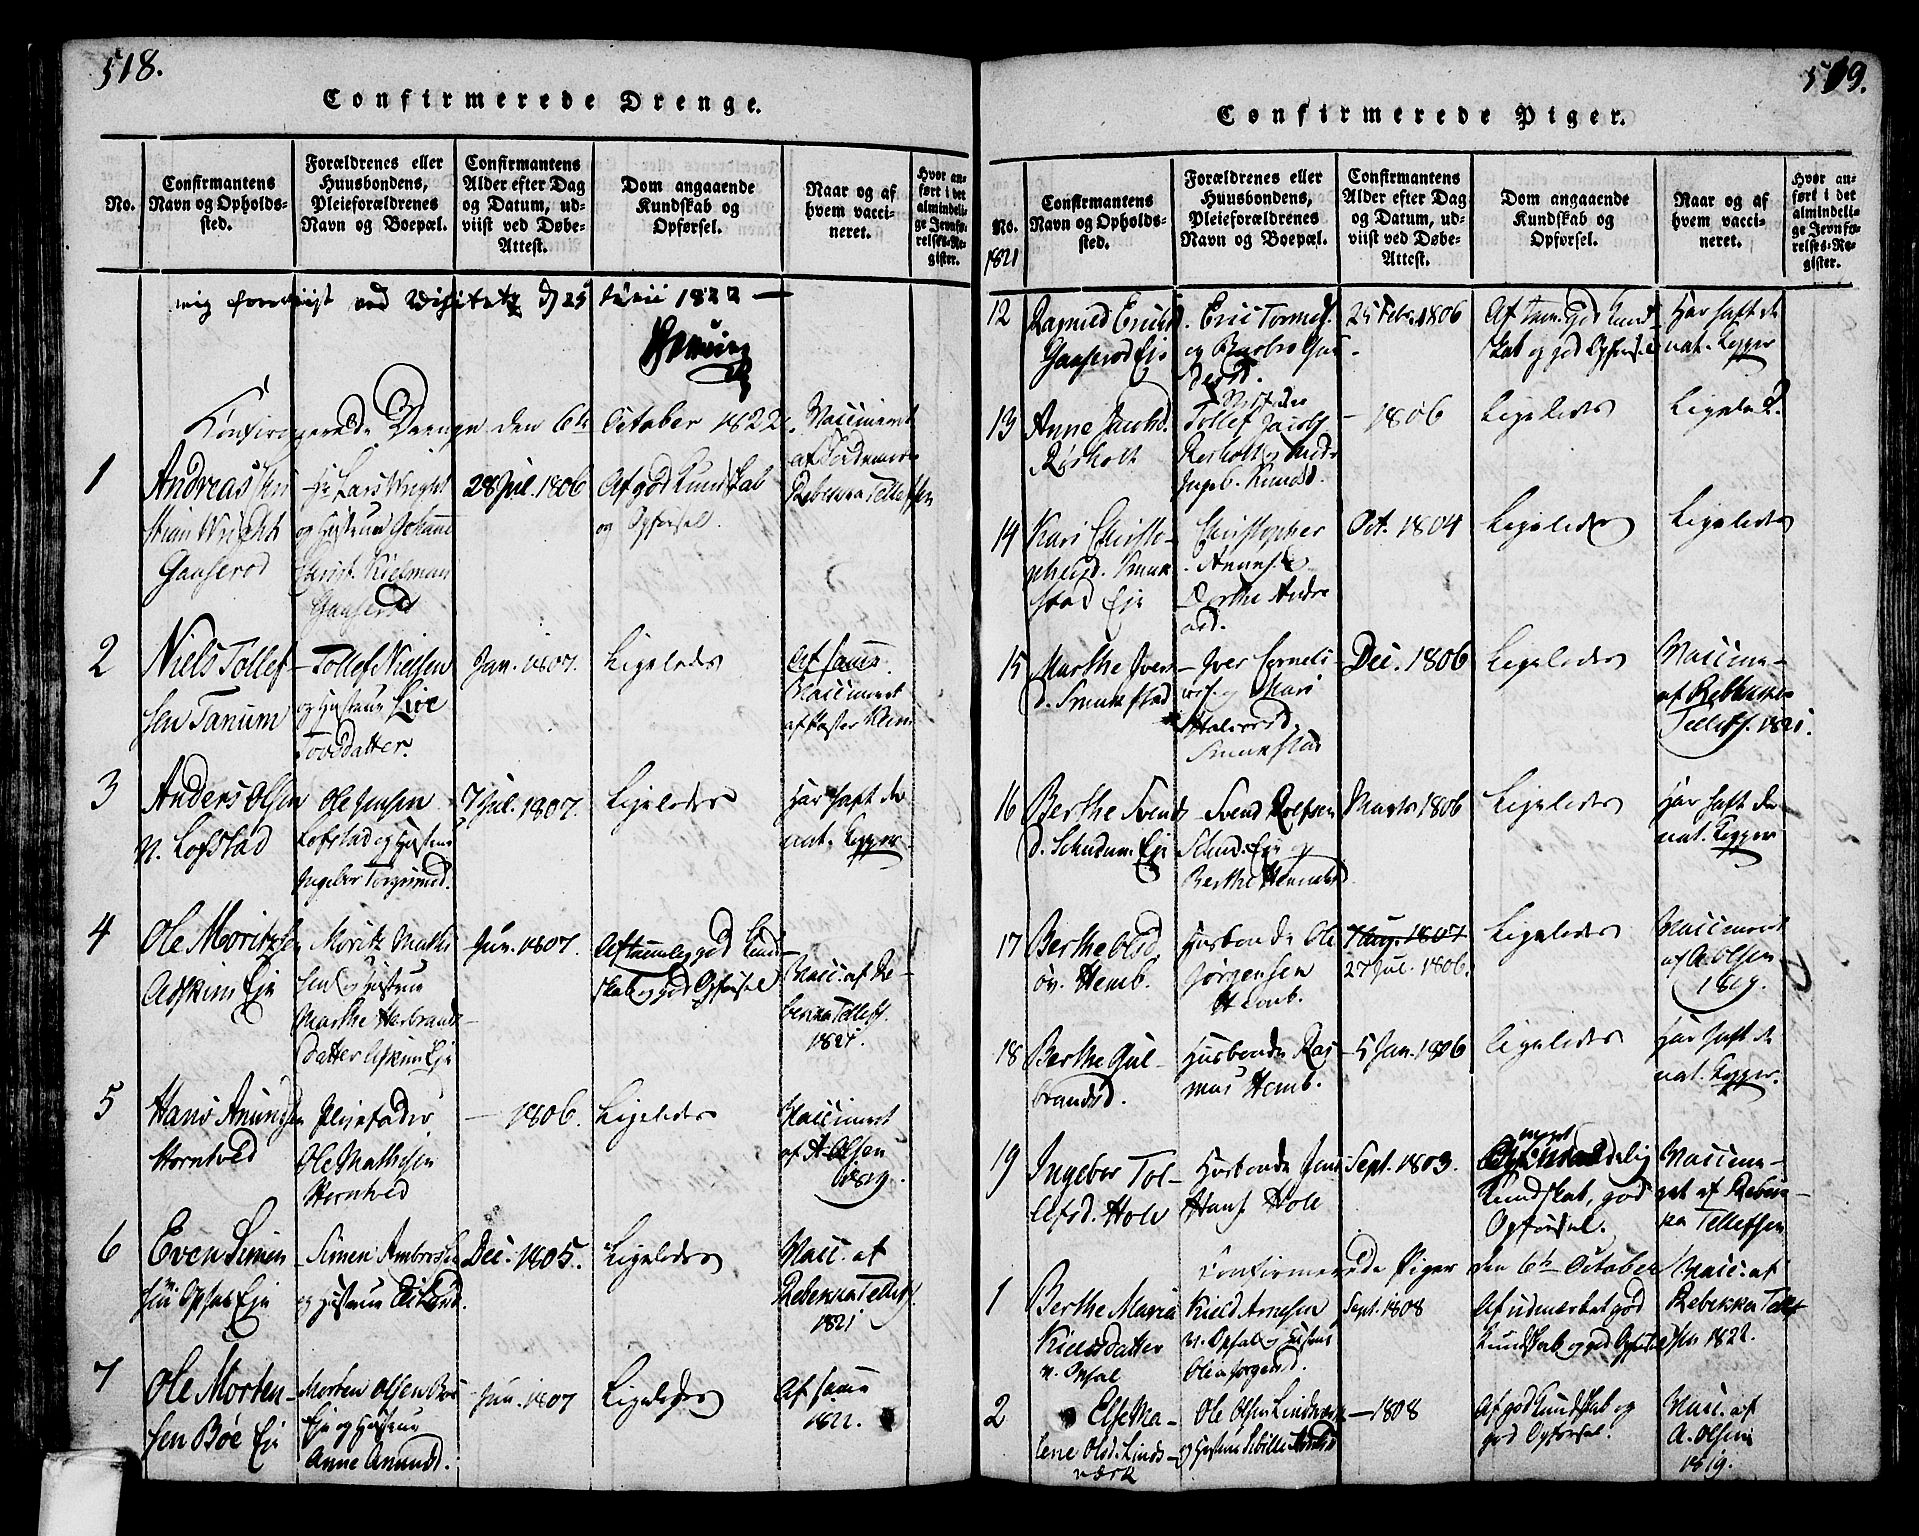 518.
Confirmerede Drenge.
No.
Confirmantens
Navn og Opholds-
sted.
Forældrenes eller
Huusbondens,
Pleieforældrenes
Navn og Boepæl.
Confirmantens
Alder efter Dag
og Datum, ud-
viist ved Døbe-
Attest.
Dom angaaende
Kundskab og
Opførsel.
Naar og af
hvem vacci-
neret.
Hvor an-
ført i det
almindeli-
ge Jevnfø-
relses-Re-
gister.
mig foreviist ved Visitatz d 25 Junii 1822 —
Confirmerede Drenge den 6te October 1822.
1
Andreas
Wright
Gaaserød
Hr Lars Wright
og Hustrue Johanne
Christ. Kielman
Gaaserød
28 Jul. 1806
Af god Kundskab
og Opførsel.
Vaccineret
af
Rebekka Tellefsen
2
Niels Tollef-
sen Tanum
Tollef Nielsen
og Hustrue
datter.
Jan. 1807.
Ligeledes
Af samme.
Vaccineret
af Pastor
3
Anders Olsen
n. Lofstad
Ole Jensen
Lofstad og Hustrue
Ingebor
7 Jul. 1807.
Ligeledes
Har haft de
nat. Kopper.
4
Ole Moritzsen
Askum Eje
Moritz Mathi
sen og Hustrue
Marthe Herbrands
datter Askum Eje
Jun. 1807.
Af temmelig god Kund-
skab og god Opførsel
Vacc. af Re-
bekka Tellefs.
1821.
5
Hans Amundsen
Horntved
Plejefader
Ole Mathisen
Horntved
— 1806.
Ligeledes
Vaccineret
af A. Olsen
1819.
6
Even Simen
sen Opsal Eje
Simen Ambros
og Hustrue
Dec. 1805.
Ligeledes
Vacc. af
Rebekka Tellefs.
1821
7
Ole Morten-
sen Bøe Eje
Morten Olsen Bøe
Eje og Hustrue
Anne Amunds.
Jun. 1807
Ligeledes
Af samme
1822.
519.
Confirmerede Piger.
No.
1821
Confirmantens
Navn og Opholds-
sted.
Forældrenes eller
Huusbondens,
Pleieforældrenes
Navn og Boepæl.
Confirmantens
Alder efter Dag
og Datum, ud-
viist ved Døbe-
Attest.
Dom angaaende
Kundskab og
Opførsel.
Naar og af
hvem vacci-
neret.
Hvor an-
ført i det
almindeli-
ge Jevnfø-
relses-Re-
gister.
12
Ragnild Erichsd.
Gaaserød Eje
Eric
og Barbro
25 Febr. 1806
Af tem. god Kund-
skab og god Opførsel
Har haft de
nat. Kopper
13
Anne Jacobsd.
Rørholt
Tollef Jacobs.
Rørholt og
Ingeb. Knudsd.
— 1806
Ligeledes
Ligeled.
14
Kari Christo-
phersd. Smuk
stad Eje
Christopher
Dorthe Andre
asd.
Oct. 1804
Ligeledes
Ligeledes
15
Marthe Ivers
d. Smukstad
Iver Corneli
us. og Mari
Halvorsd.
Smukstad
Dec. 1806
Ligeledes
Vaccine-
af Rebekka
Tellefs. 1821.
16
Berthe Svends
d. Schudum. Eje
Svend Rolfsen
Schud. Eje og
Berthe
Marts 1806
Ligeledes
Har haft de
nat. Kopper
17
Berthe Olsd
øv. Hemb.
Husbonde Ole
Jørgensen
Hemb.
7 Aug. 1807
27 Jul. 1806.
Ligeledes
Vaccineret
af A. Olsen
1819.
18
Berthe Gul-
brandsd.
Husbonde Ras
mus Hemb.
5 Jan. 1806
Ligeledes
Har haft de
nat. Kopper.
19
Ingebor Tol-
lefsd. Hole
Husbonde Jens
Hans. Hole
Sept. 1803.
Kundskab, god
Opførsel.
Vaccine-
ret af Rebek-
ka Tellefsen
Confirmerede Piger den 6te October
1
Berthe Maria
Kieldsdatter
n. Opsal
Kield Arnesen
n. Opsal og Hustrue
Olea Jørgensd.
Sept. 1808
Af udmærket god
Kundskab og god Opførsel
Vacc. af
Rebekka Tellef
sen 1822.
2
Else Ma-
lene Olsd. Linds-
værk
Ole Olsen Lindsværk
og Hustrue Sibille
— 1808
Af god Kundskab og
god Opførsel.
Vacc. af
A. Olsen
1819.